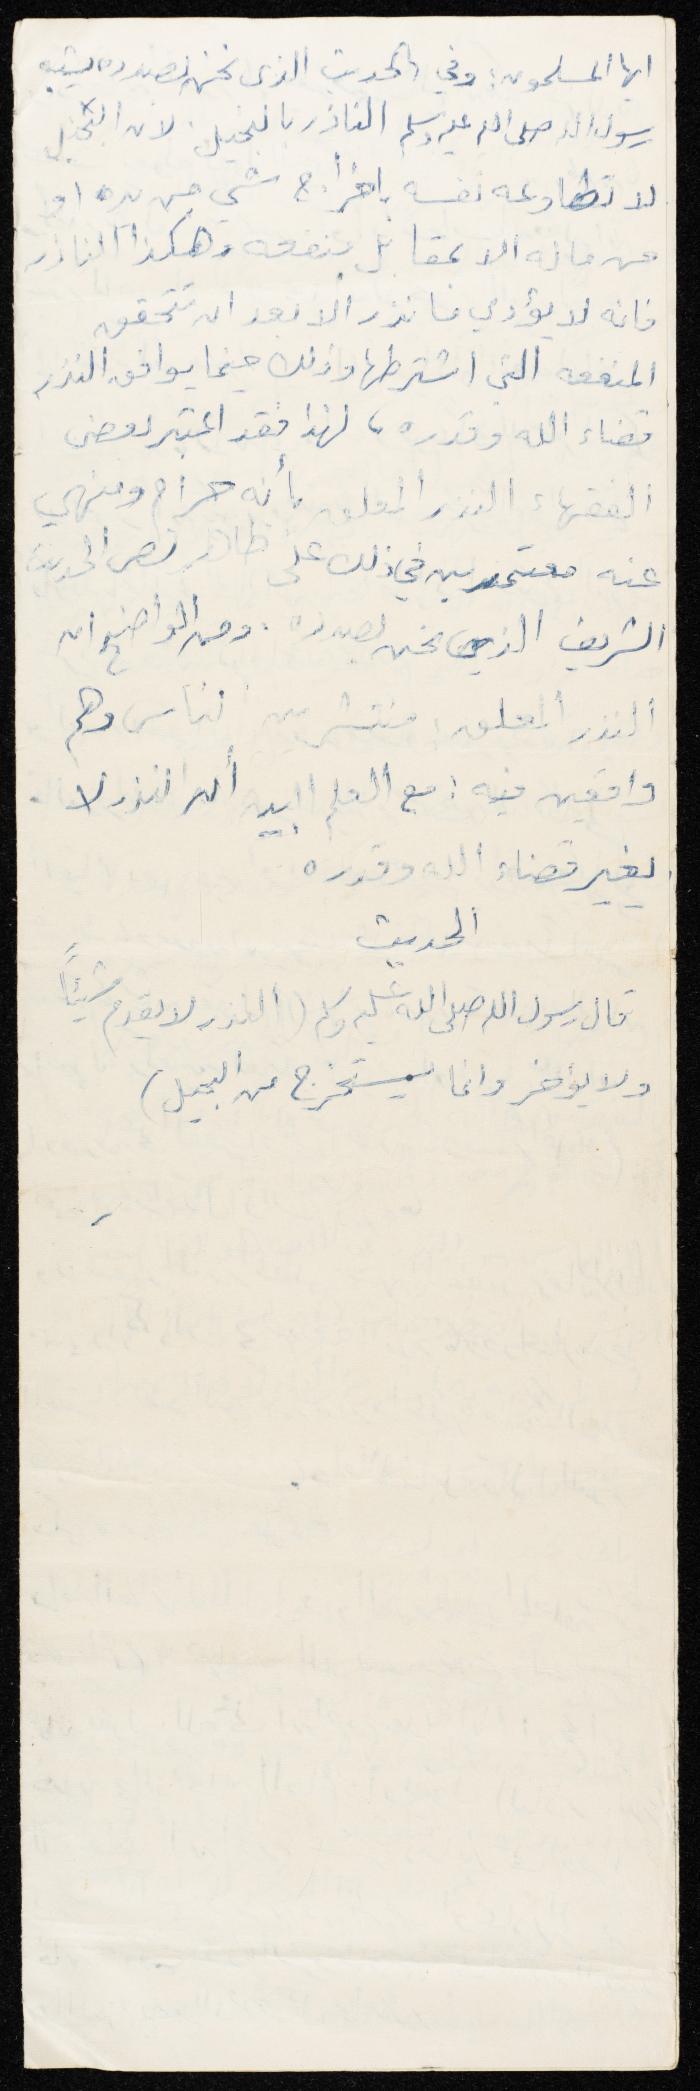 ايها المسلمون: وفي الحديث الذي نحن بصدده يشبه
رسول الله صلى الله عليه وسلم الناذر بالبخيل. لان البخيل
لا تطاوعه نفسه باخراج شي من يده او
من ماله الا بمقابل منفعه وهكذا الناذر
فانه لا يؤدي ما نذر الا بعد ان تتحقق
المنفعه التي اشترطها وذلك حينما يوافق النذر
قضاء الله وقدره، لهذا فقد اعتبر بعض
الفقهاء النذر المعلق بأنه حرام ومنهي
عنه معتمدين في ذلك على ظاهر نص الحديث
الشريف الذي نحن بصدده. ومن الواضح ان
النذر المعلق: منتشر بين الناس وهم
واقعين فيه: مع العلم ايها أن النذر لا
يغير قضاء الله وقدره
الحديث
قال رسول الله صلى الله عليه وسلم (النذر لا يقدم شيئاً
ولا يؤخر وانما يستخرج من البخيل)